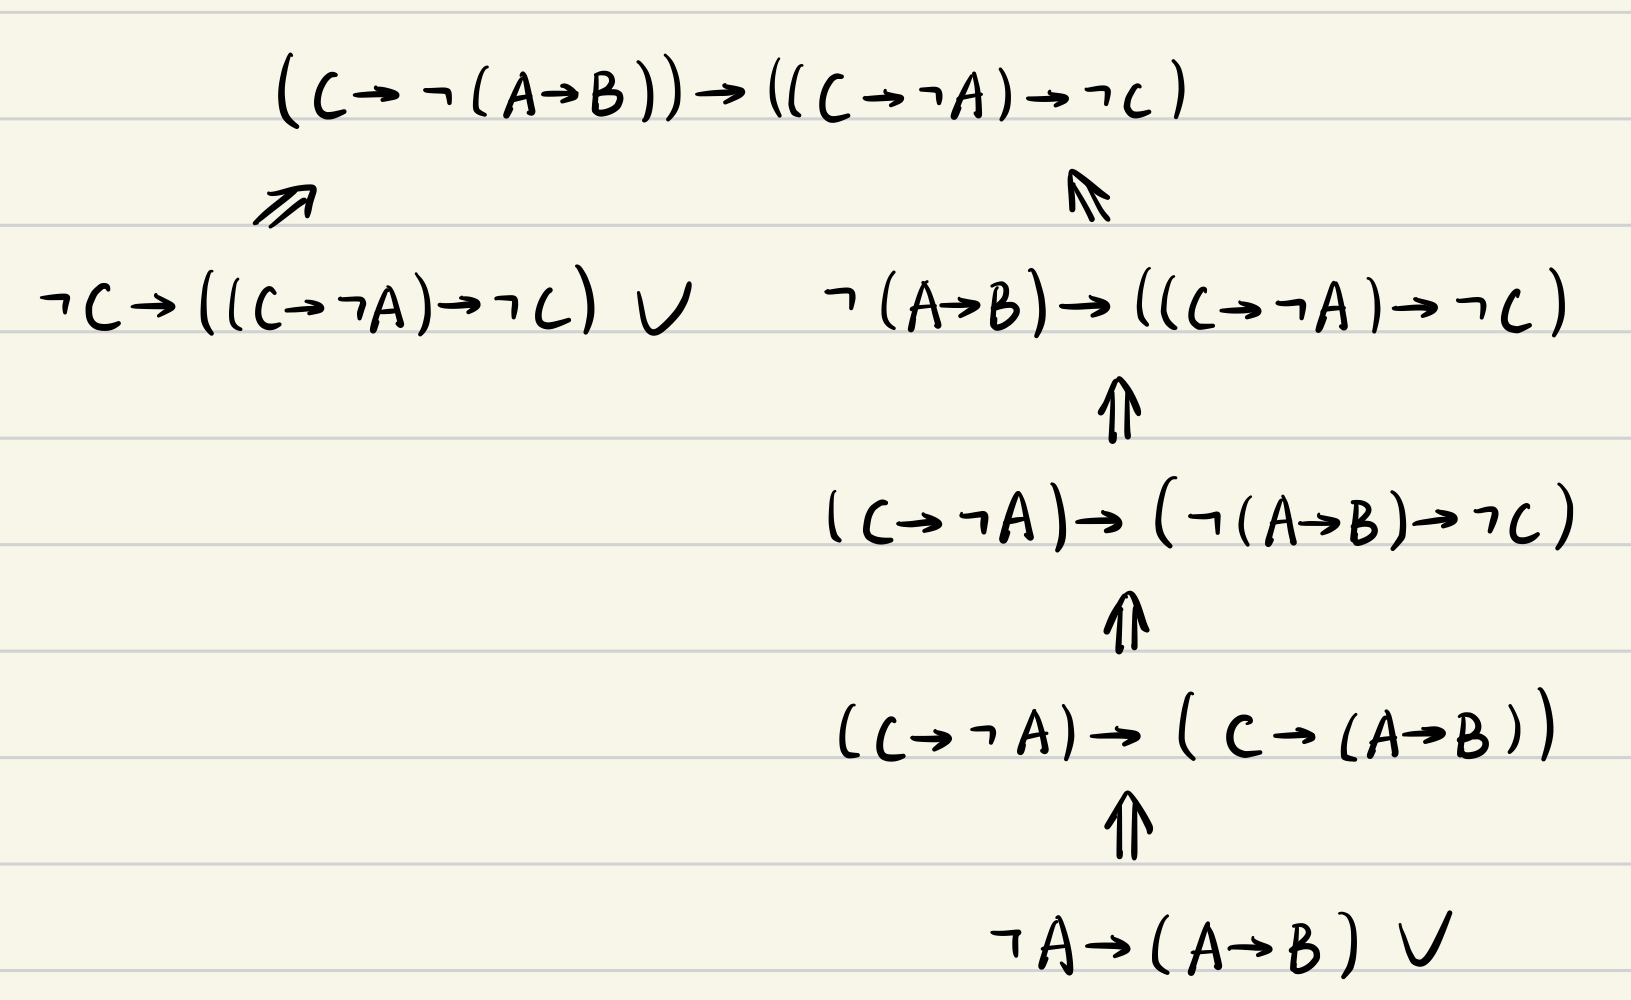 (C→¬(A→B))→((C→¬A)→¬C)
⇗ ⇖
¬C→((C→¬A)→¬C) ✓ ¬(A→B)→((C→¬A)→¬C)
⇑
(C→¬A)→(¬(A→B)→¬C)
⇑
(C→¬A)→(C→(A→B))
⇑
¬A→(A→B) ✓